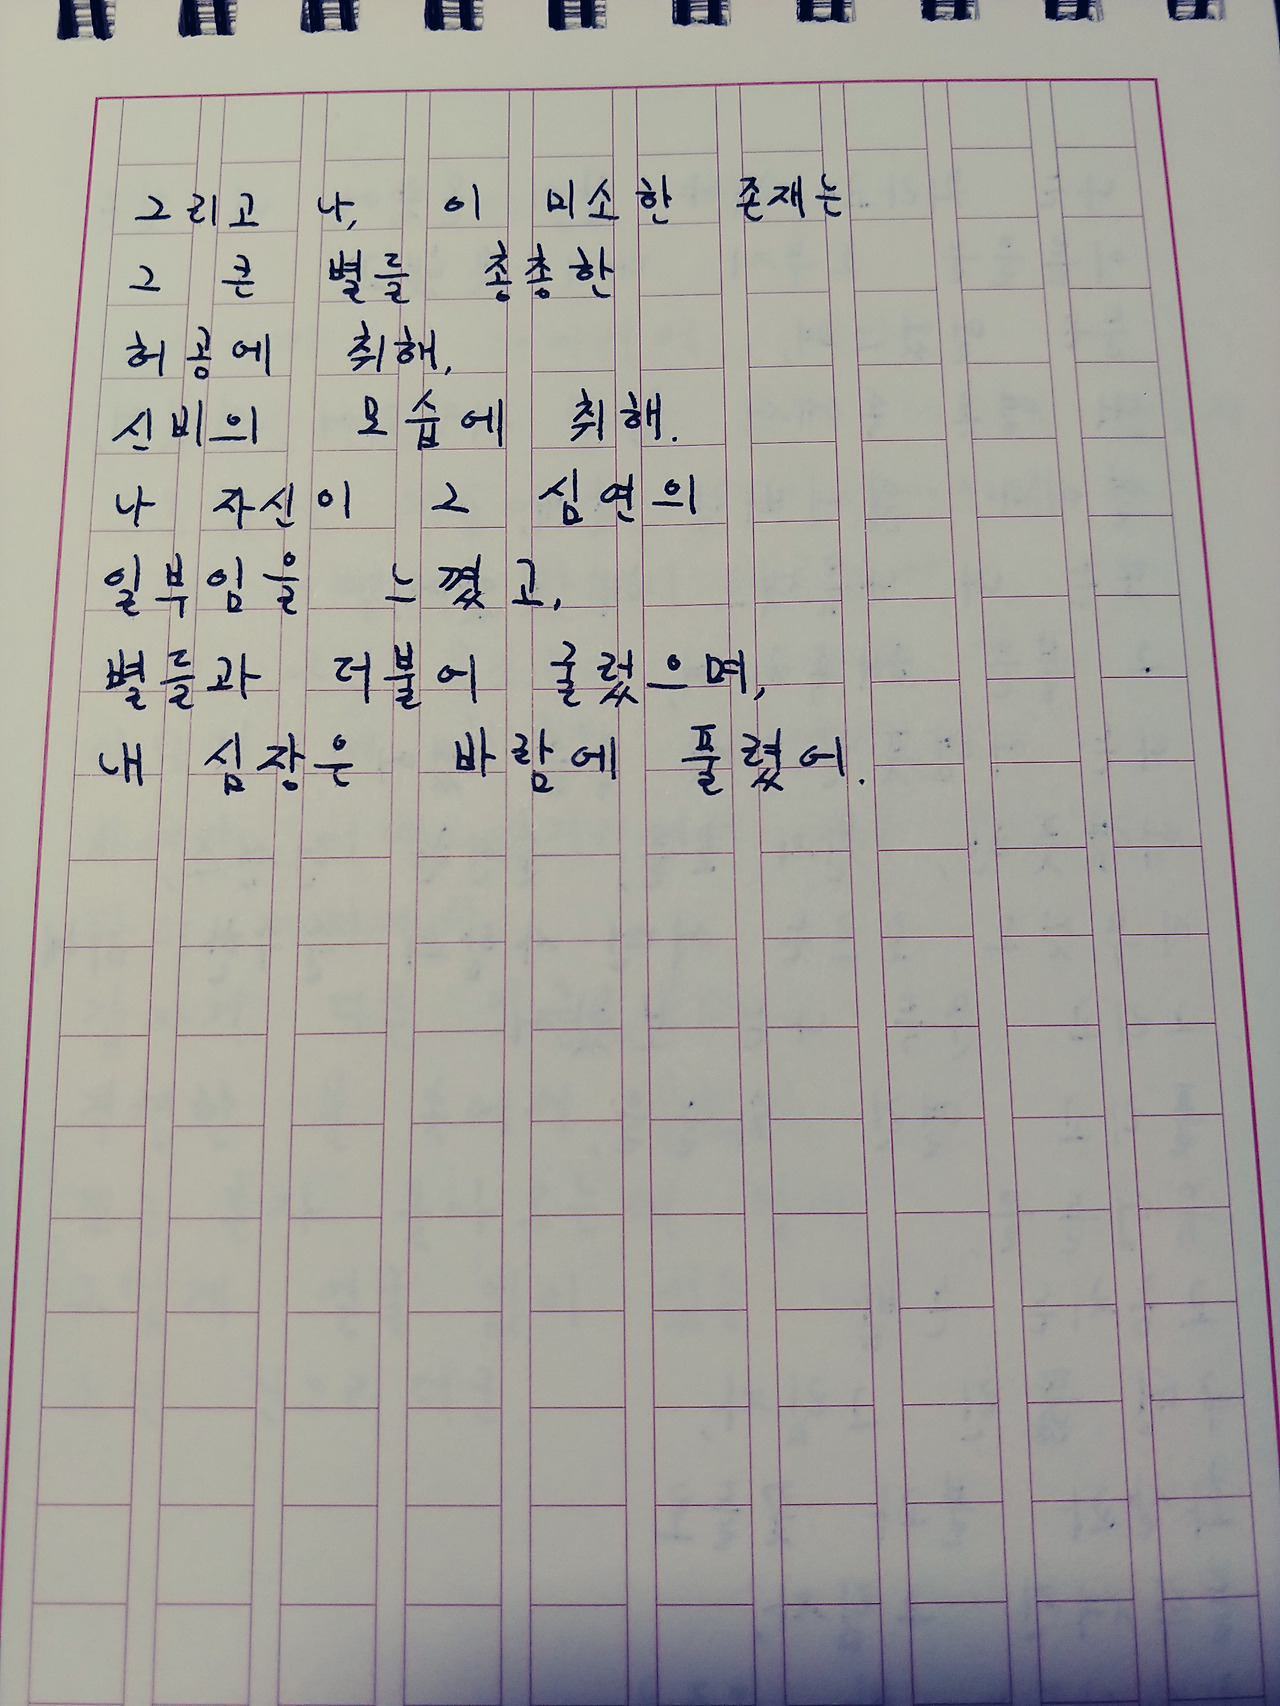 그리고 나, 이 미소한 존재는
그 큰 별들 총총한
허공에 취해,
신비의 모습에 취해.
나 자신이 그 심연의
일부임을 느꼈고,
별들과 더불어 굴렀으며,
내 심장은 바람에 풀렸어.